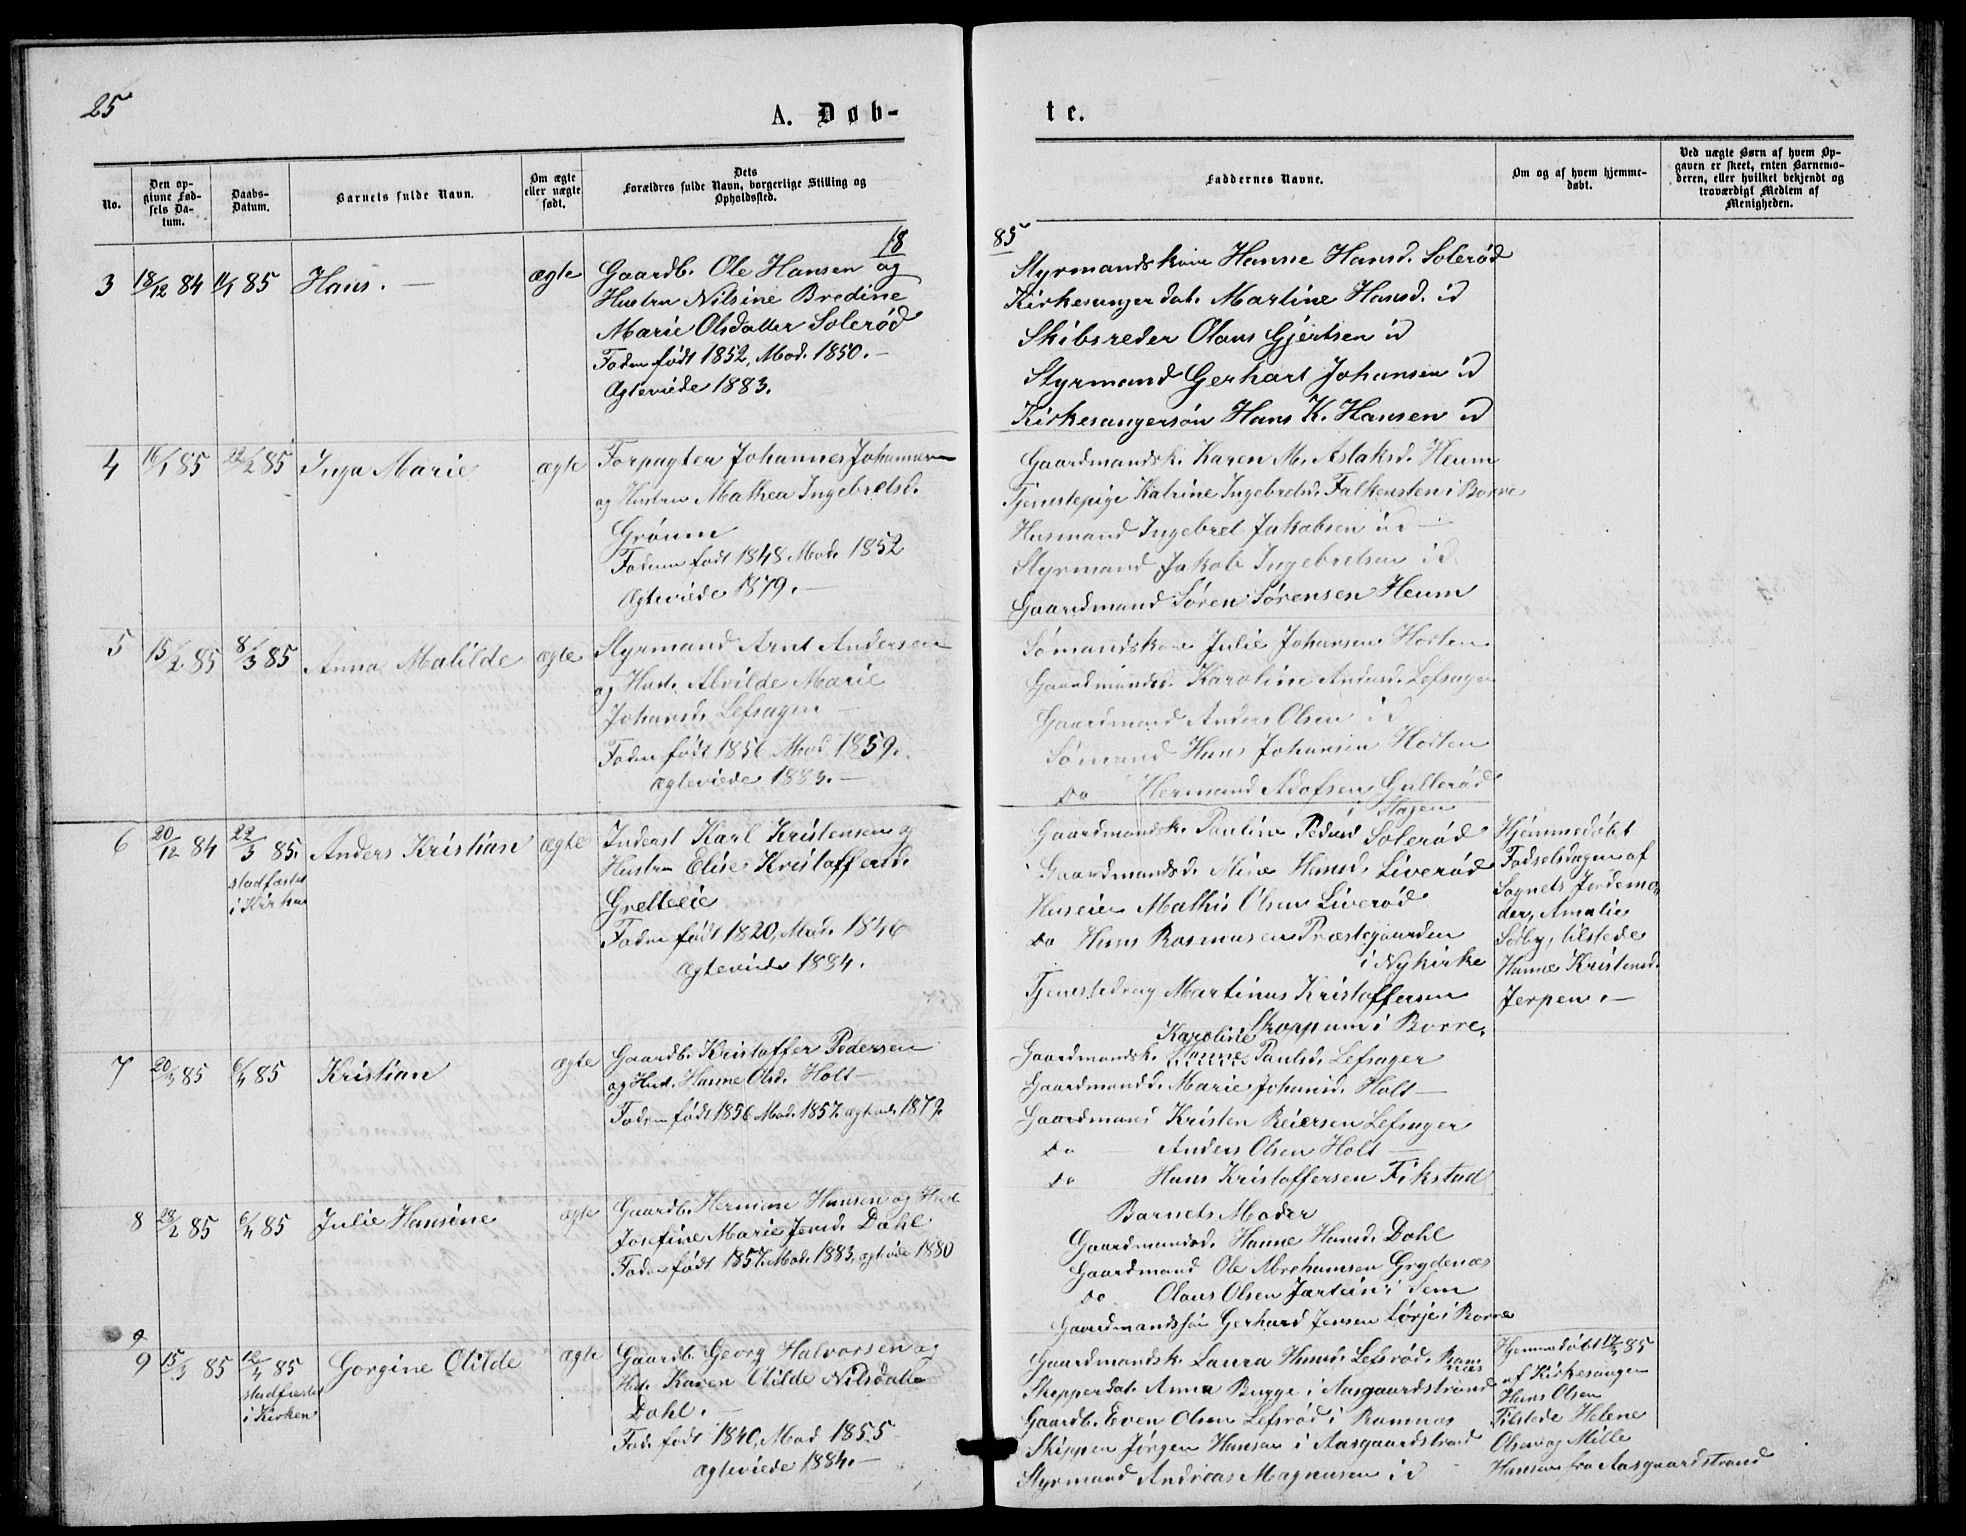 25
A. Døb-
te.
No.
Den op-
givne Fød-
sels Da-
tum.
Daabs-
Datum.
Barnets fulde Navn.
Om ægte
eller uægte
født.
Dets
Forældres fulde Navn, borgerlige Stilling og
Opholdssted.
Faddernes Navne.
Om og af hvem hjemme-
døbt.
Ved uægte Børn af hvem Op-
gaven er skeet, enten Barnemo-
deren, eller hvilket bekjendt og
troværdigt Medlem af
Menigheden.
18
85
3 18/12 84 11/1 85 Hans. — ægte
Gaardb. Ole Hansen og
Hustru Nilsine Bredine
Marie Olsdatter Solerød
Faderen født 1852, Mod. 1850. —
Ægteviede 1883.
Styrmandskone Hanne Hansd. Solerød
Kirkesangerdat. Martine Hansd. id
Skibsreder Olaus Gjertsen id
Styrmand Gerhart Johansen id
Kirkesangersøn Hans K. Hansen id
4 16/1 85 22/2 85 Inga Marie ægte
Forpagter Johannes Johannesen
og Hustru Mathea Ingebretsd.
Grøum
Faderen født 1848 Mod. 1852
Ægteviede 1879. —
Gaardmandsk. Karen M. Aslaksd. Heum
Tjenestepige Katrine Ingebretsd. Falkensten i Borre
Husmand Ingebret Jakobsen id —
Styrmand Jakob Ingebretsen id
Gaardmand Søren Sørensen Heum
5 15/2 85 8/3 85 Anna Matilde ægte
Styrmand Arnt Andersen
og Hust. Alvilde Marie
Johansd. Lefsagen —
Faderen født 1856 Mod. 1859.
Ægteviede 1883. —
Sømandskone Julie Johansen Horten
Gaardmandsd. Karoline Andersd. Lefsagen
Gaardmand Anders Olsen id
Sømand Hans Johansen Horten
Do Hermand Adofsen Gullerød
i Slagen
6 20/12 84 22/3 85. Anders Kristian ægte
stadfæstet
i Kirken
Inderst Karl Kristensen og
Hustru Elise Kristoffersd.
Gretteeie
Faderen født 1820, Mod. 1846
Ægteviede 1884.
Gaardmandsk. Pauline Pedersd Solerød
Gaardmandsd. Mina Hansd. Liverød
Huseier Mathis Olsen Liverød
Do Hans Rasmusen Præstegaarden
i Nykirke
Tjenestedreng Martinus Kristoffersen
Skoppum i Borre.
Hjemmedøbt
Fødselsdagen af
Sognets Jordemo-
der, Amalie
Solby, tilstede
Hanne Kristensd.
Jerpen. —
7 20/2 85 6/4 85 Kristian ægte
Gaardb. Kristoffer Pedersen
og Hust. Hanne Olsd. Holt —
Faderen født 1856 Mod. 1857. ægtevd. 1879.
Karoline
Gaardmandsk. Hanne Paulsd. Lefsager
Gaardmandd. Marie Johansd. Holt —
Gaardmand Kristen Reiersen Lefsager
Do Anders Olsen Holt —
Do Hans Kristoffersen Fikstad
8 28/2 85 6/4 85 Julie Hansine ægte
Gaardb. Herman Hansen og Hust
Josefine Marie Jensd. Dahl
Faderen født 1857. Mod. 1883, ægtvide 1880
Barnets Moder
Gaardmandsd. Hanne Hansd. Dahl
Gaardmand Ole Abrahamsen Grydenæs
Do Olaus Olsen Jartein i Sem
Gaardmandssøn Gerhard Jensen Lørje i Borre
9
9 15/3 85 12/4 85 Gorgine Otilde ægte
stadfæstet
i Kirken
Gaardb. Georg Halvorsen og
Hust. Karen Otilde Nilsdatter
Dahl. —
Fad. født 1840, Mod 1855
Ægteviede 1884. —
Gaardmandsk. Laura Hansd. Lefsrød. Ram-
næs
Skipperdat. Anna Bugge i Aasgaardstrand
Gaardb. Even Olsen Lefsrød i Ramnæs
Skipper Jørgen Hansen i Aasgaardstrand
Styrmand Andreas Magnusen id
Hjemmedøbt 17/3 85
af Kirkesanger
Hans Olsen
Tilstede Helene
Olsen og Mille
Hansen fra Aasgaardstrand